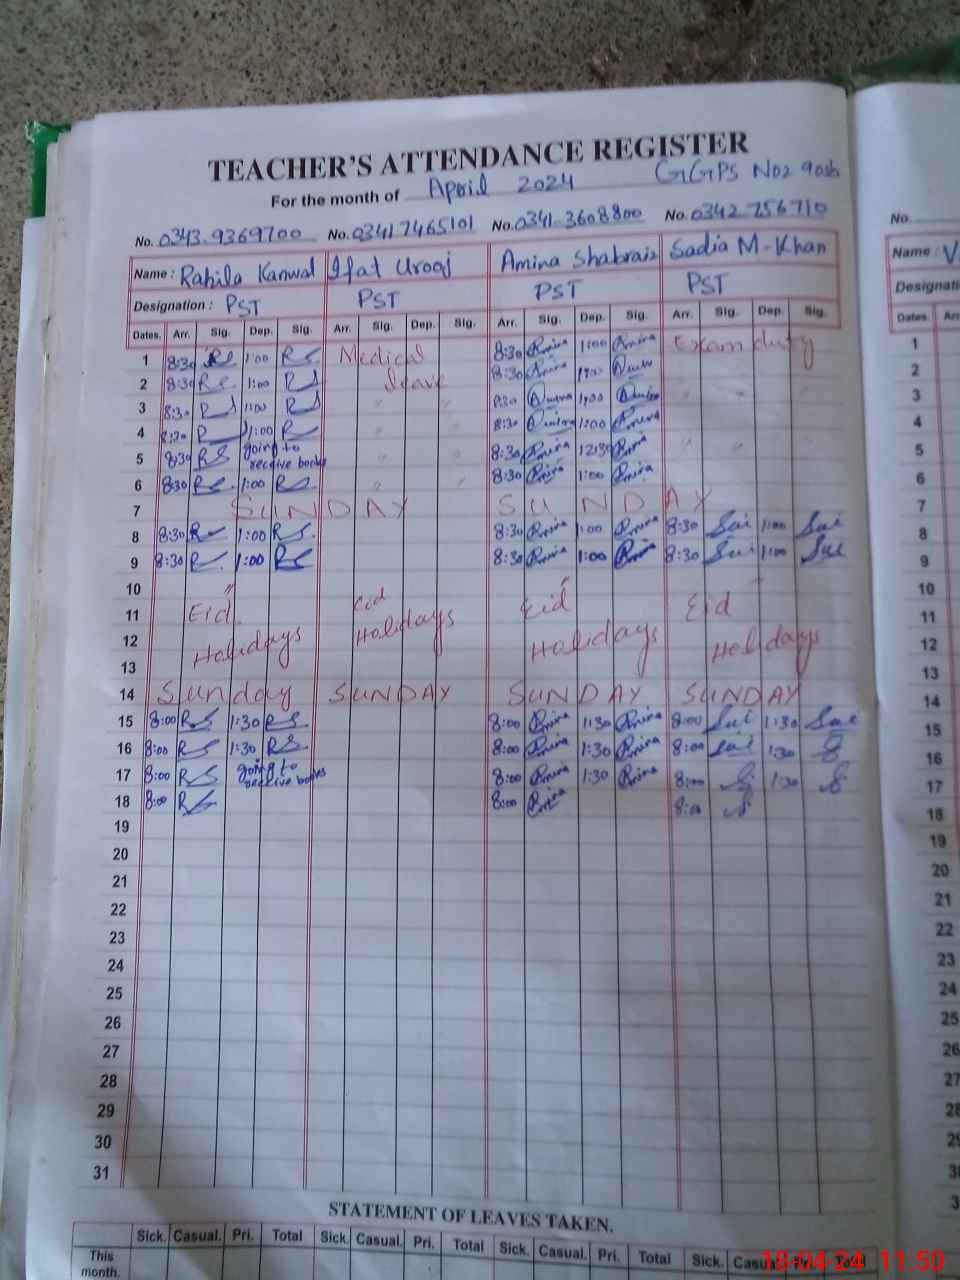 TEACHER'S ATTENDANCE REGISTER
For the month of April 2024 GGPS No2
No. 0343-9369700 No. 03417465101 No. 0341-3608800 No. 0342-756710 No.
Name : Rahila Kanwal Ifat Urooj Amina Shabraiz Sadia M-Khan Name :
Designation : PST PST PST PST
Dates. Arr. Sig. Dep. Sig. Arr. Sig. Dep. Sig. Arr. Sig. Dep. Sig. Arr. Sig. Dep. Sig. Dates.
1 8:30 RS 1:00 RS Medical 8:30 Amina 1:00 Amina Exam duty 1
2 8:30 RS 1:00 RS leave 8:30 Amina 1:00 2
3 8:30 RS 1:00 RS " " 8:30 Amina 1:00 Amina " " 3
4 8:30 R 1:00 RS " " 8:30 Amina 1:00 Amina " " 4
5 8:30 RS going to receive books " " 8:30 Amina 12:30 Amina " " 5
6 8:30 RS 1:00 RS " " 8:30 Amina 1:00 Amina 6
7 SUNDAY SUNDAY 7
8 8:30 RS 1:00 RS 8:30 Amina 1:00 Amina 8:30 Sai 1:00 Sai 8
9 8:30 RS 1:00 RS 8:30 Amina 1:00 Amina 8:30 Sai 1:00 Sai 9
10 10
11 Eid Eid Eid Eid 11
12 Holidays Holidays Holidays Holidays 12
13 13
14 Sunday SUNDAY SUNDAY SUNDAY 14
15 8:00 RS 1:30 RS 8:00 Amina 1:30 Amina 8:00 Sai 1:30 Sai 15
16 8:00 RS 1:30 RS 8:00 Amina 1:30 Amina 8:00 Sai 1:30 16
17 8:00 RS going to receive books 8:00 Amina 1:30 Amina 8:00 1:30 17
18 8:00 RS 8:00 Amina 8:00 18
19 19
20 20
21 21
22 22
23 23
24 24
25 25
26 26
27 27
28 28
29 29
30 30
31
STATEMENT OF LEAVES TAKEN.
Sick. Casual. Pri. Total Sick. Casual. Pri. Total Sick. Casual. Pri. Total Sick. Total
This
month.
18-04-24 11:50